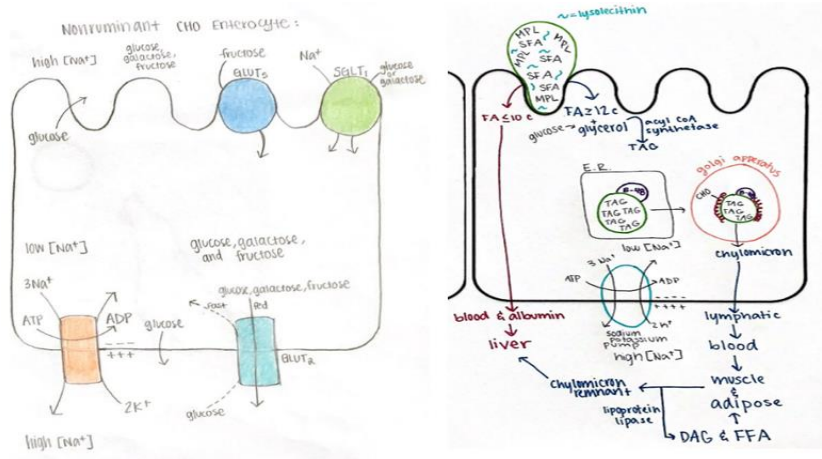 Nonruminant CHO Enterocyte:
high [Na⁺]
glucose,
galactose,
fructose
fructose
GLUT5
Na⁺
SGLT1
glucose
or
galactose
glucose
low [Na⁺]
glucose, galactose,
and fructose
3Na⁺
ATP
ADP
---
+++
2K⁺
glucose
glucose, galactose, fructose
fast
fed
GLUT2
glucose
high [Na⁺]
~=lysolecithin
MPL
SFA
MPL
MPL
SFA
SFA
SFA
MPL
FA≤10 c
FA≥12c
+
glucose→ glycerol
acyl CoA
synthetase
TAG
E.R.
B-48
TAG
TAG TAG
TAG TAG
golgi apparatus
CHO
B-48
TAG
TAG TAG
chylomicron
low [Na⁺]
3 Na⁺
ATP
ADP
----
++++
2K⁺
sodium
potassium
pump
high [Na⁺]
blood & albumin
liver
lymphatic
blood
muscle
&
adipose
chylomicron
remnant
lipoprotein
lipase
DAG & FFA